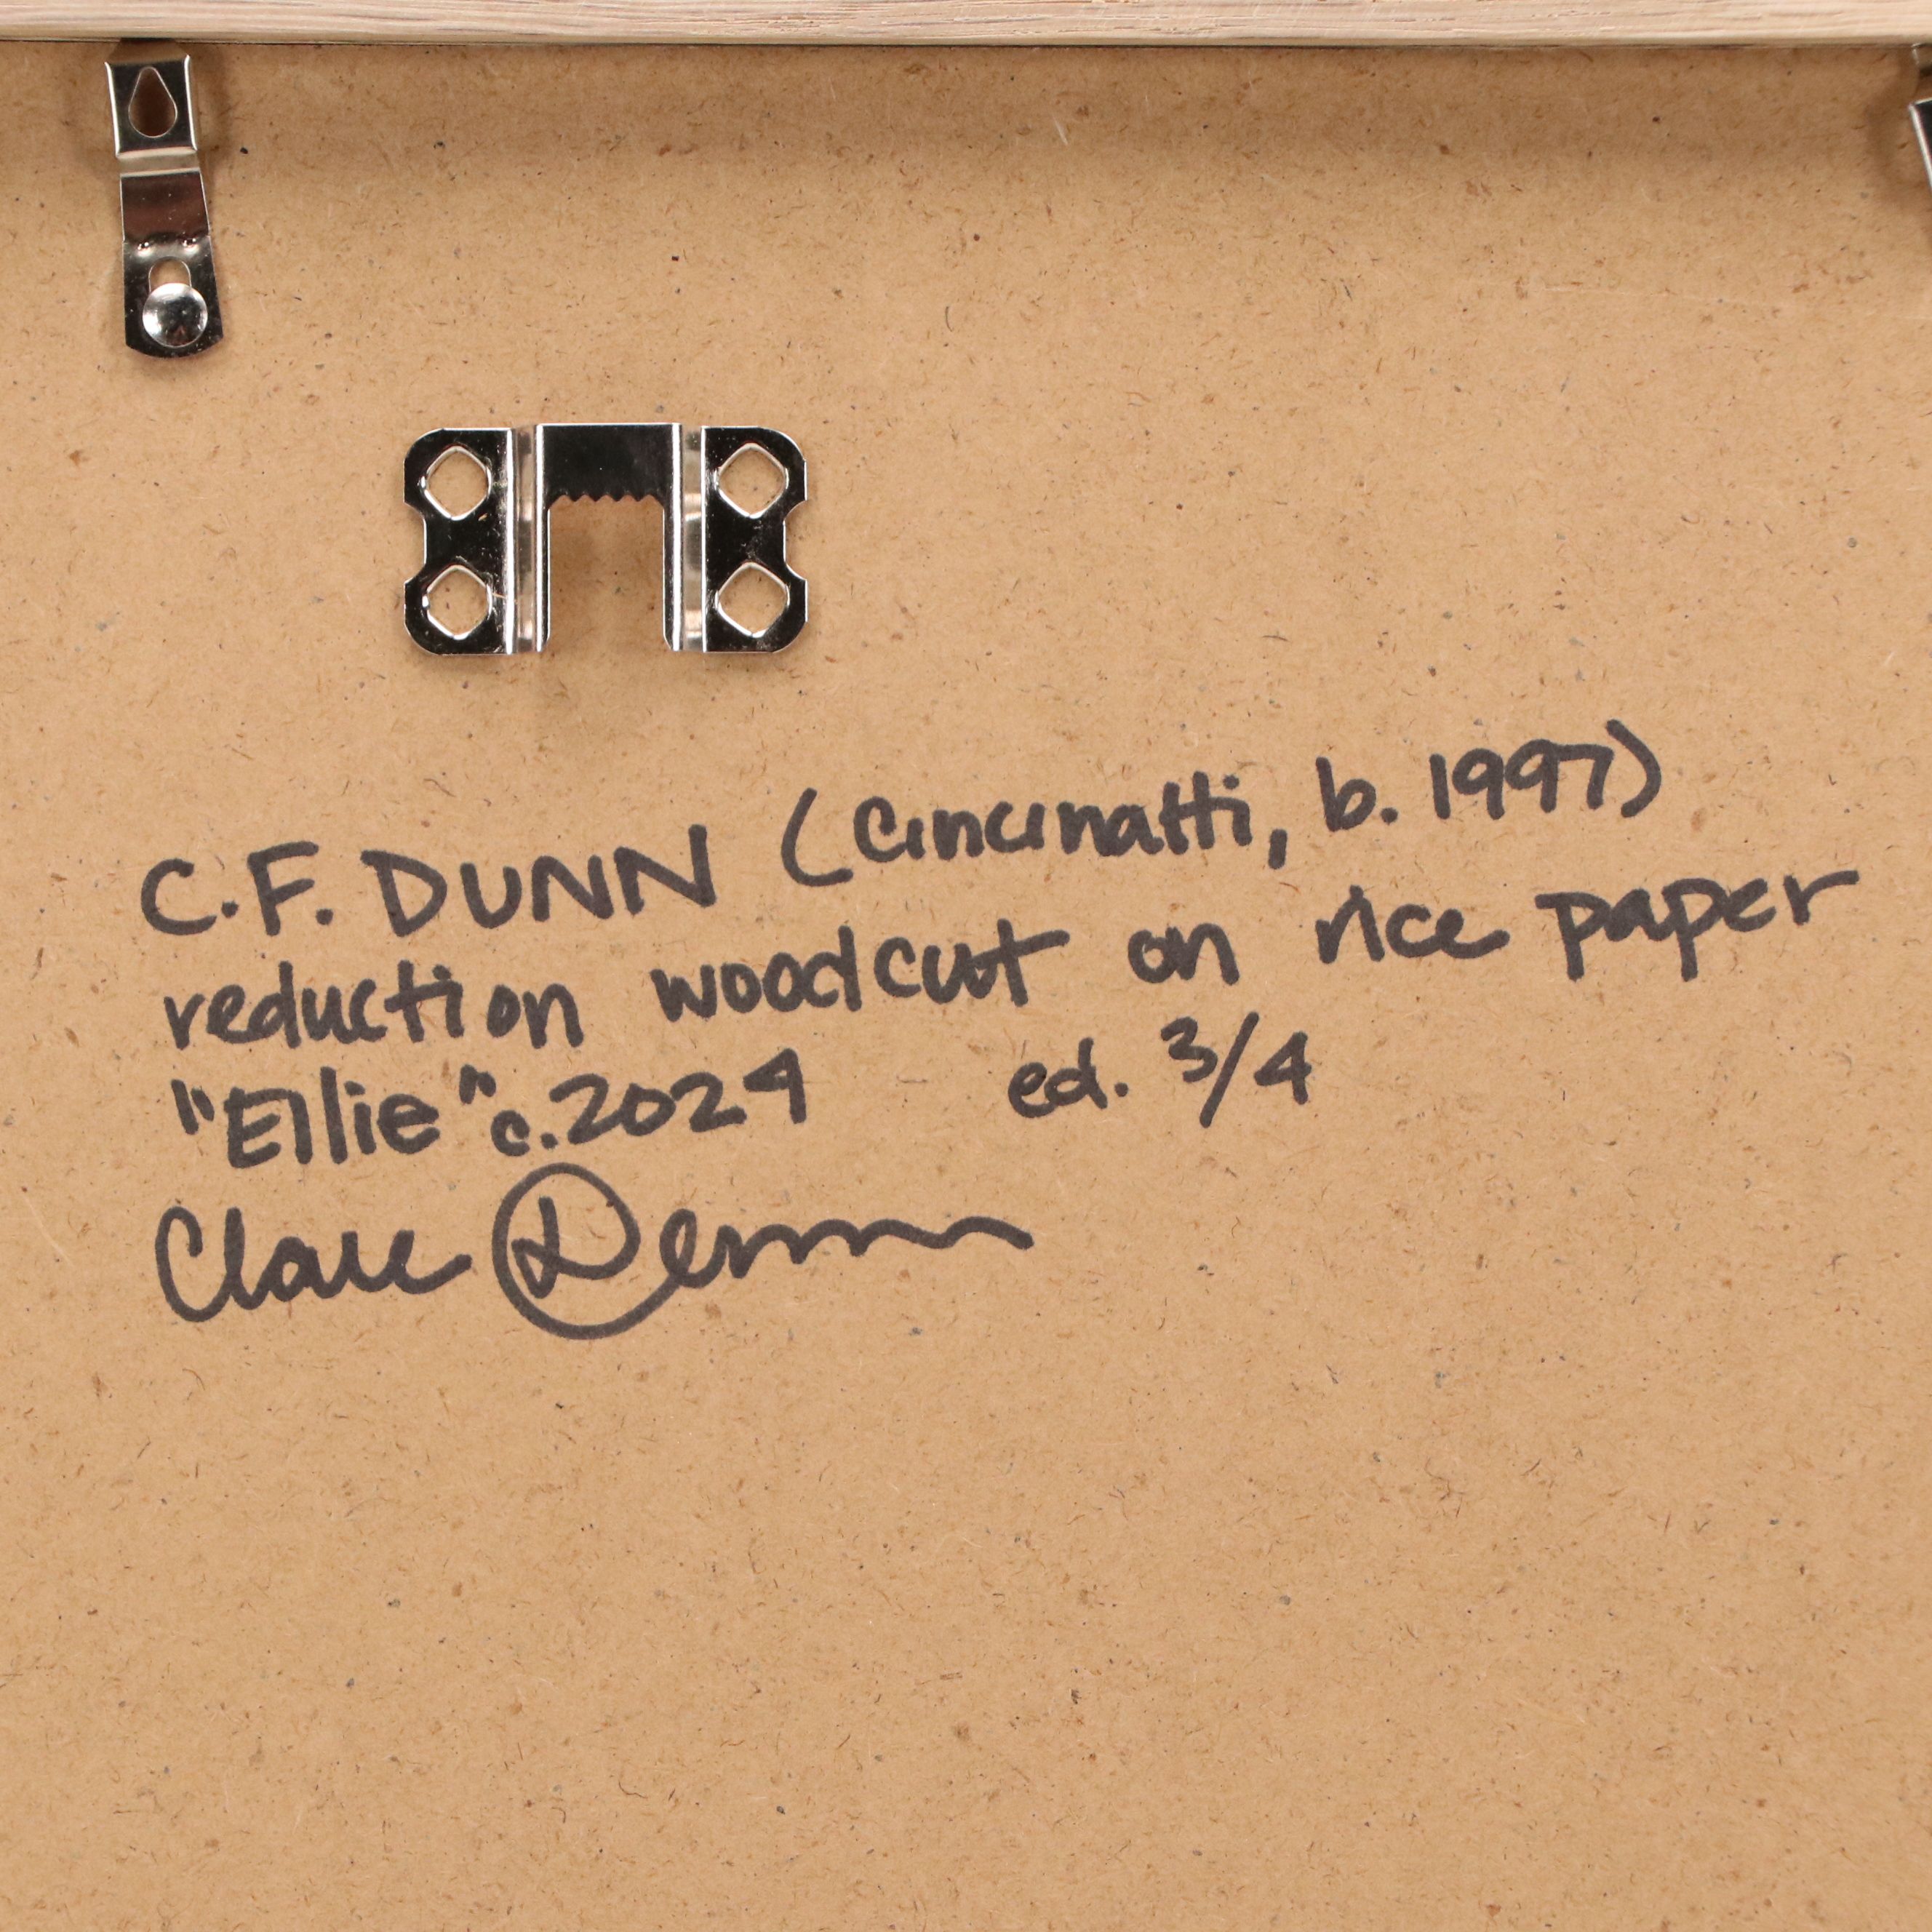 C.F. DUNN (Cincinatti, b. 1997)
reduction woodcut on rice paper
"Ellie" c.2024 ed. 3/4
Clare